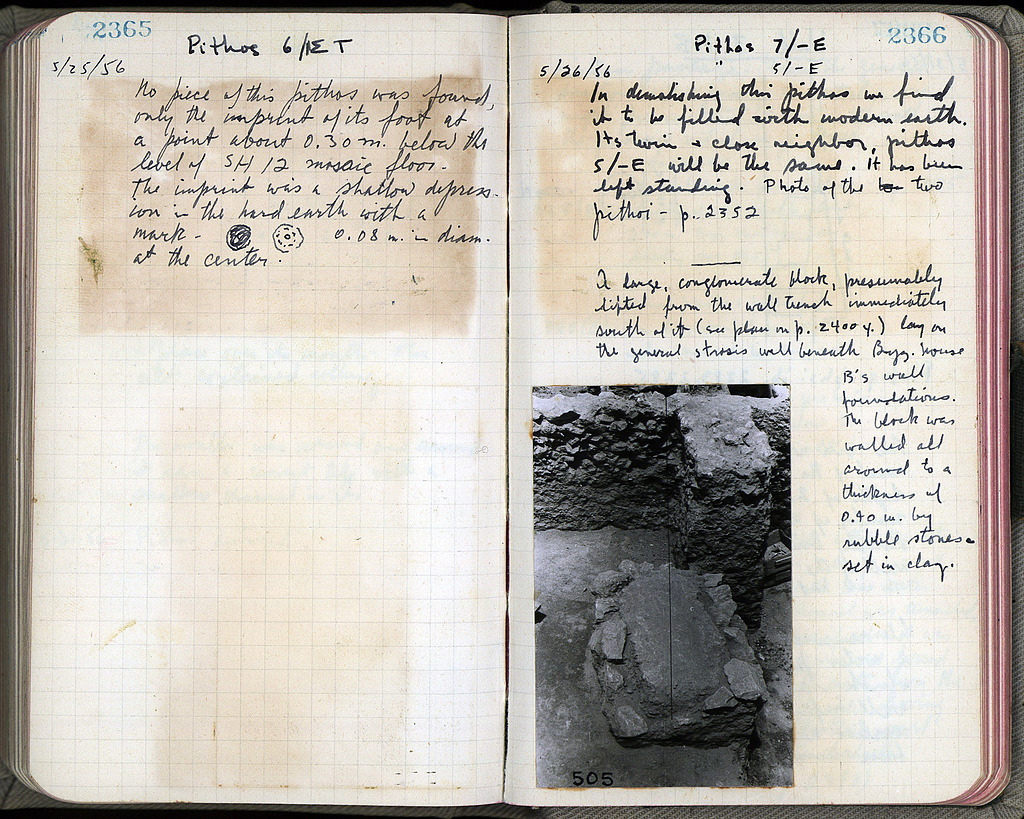 2365
Pithos 6/
5/25/56
No piece of this pithos was found,
only the imprint of its foot at
a point about 0.30 m. below the
level of SH 12 mosaic floor.
The imprint was a shallow depress-
ion in the hard earth with a
mark - 0.08 m. in diam.
at the center.
2366
Pithos 7/-E
" 5/-E
5/26/56
In demolishing this pithos we find
it to be filled with modern earth.
Its twin + close neighbor, pithos
5/-E will be the same. It has been
left standing. Photo of the two
pithoi - p. 2352
A large, conglomerate block, presumably
lifted from the wall trench immediately
south of it (see plan on p. 2400 y.) lay on
the general strosis well beneath Byz. House
B's wall
foundations.
The block was
walled all
around to a
thickness of
0.40 m. by
rubble stones
set in clay.
505